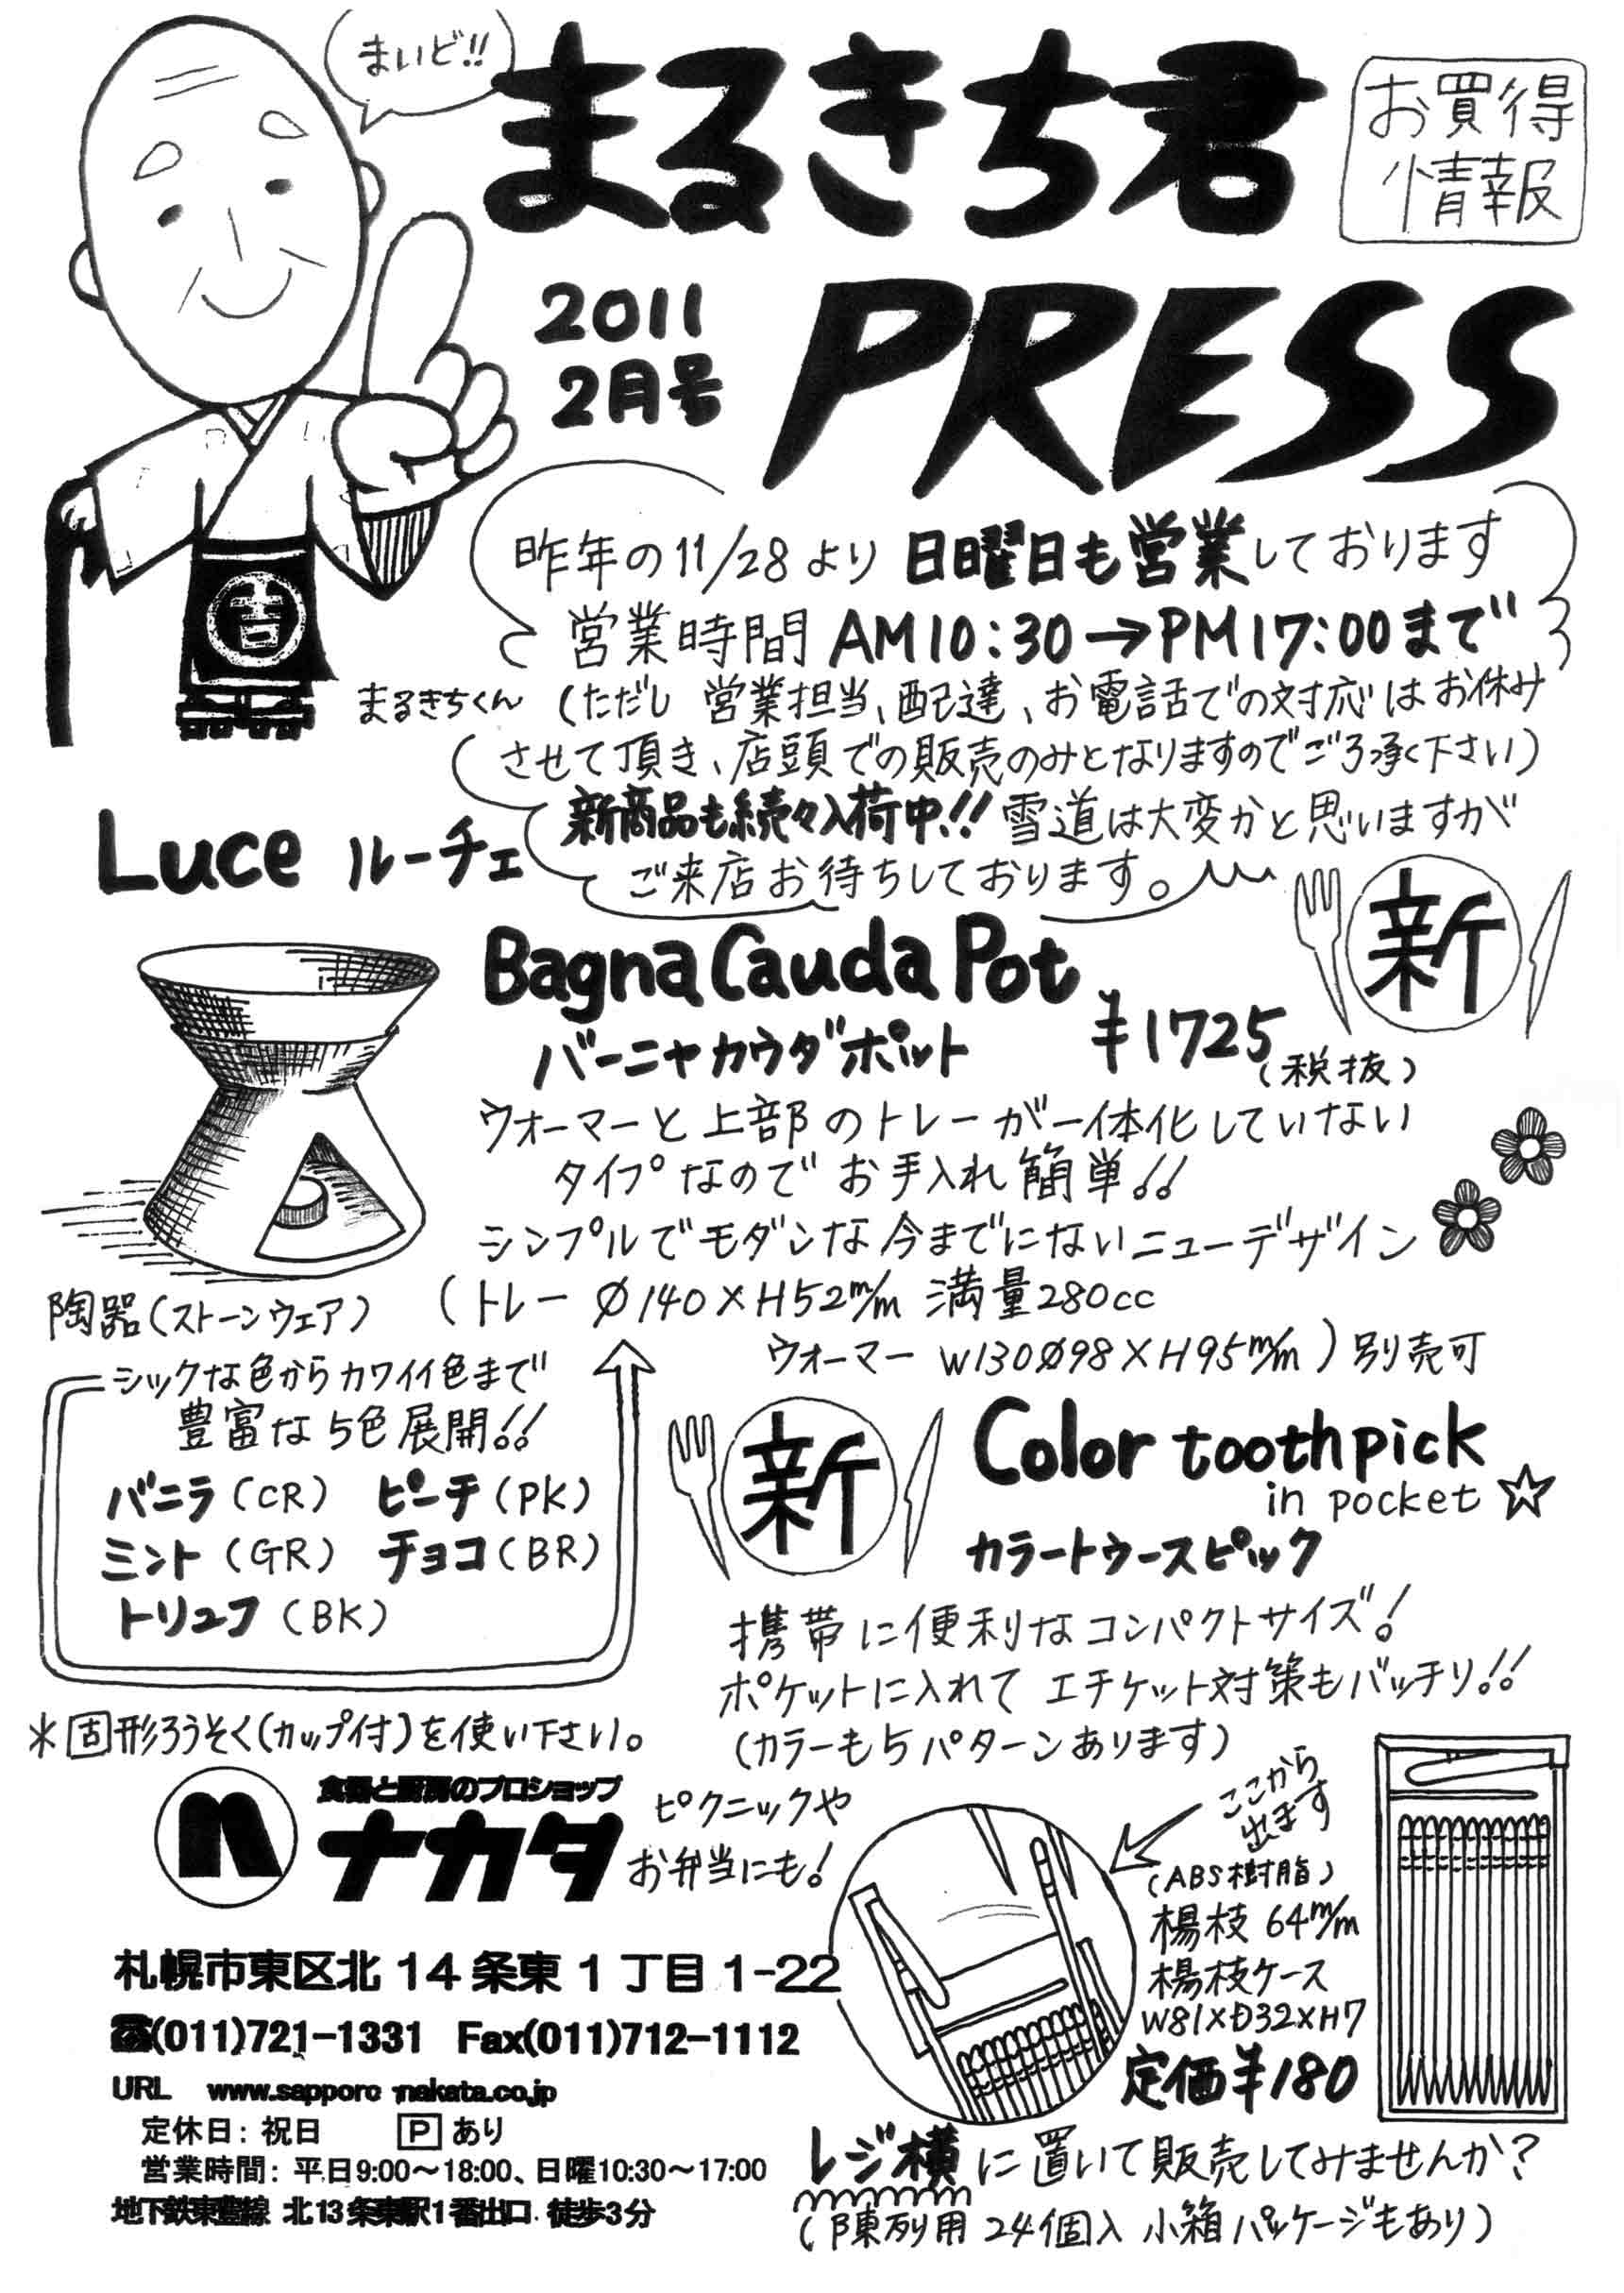 まいど!!
まるきち君
お買得
情報
PRESS
2011
2月号
昨年の11/28より 日曜日も営業しております
営業時間 AM10:30→PM17:00まで
(ただし 営業担当、配達、お電話での対応はお休み
させて頂き、店頭での販売のみとなりますのでご了承く下さい)
新商品も続々入荷中!! 雪道は大変かと思いますが
ご来店お待ちしております。
吉
まるきちくん
Luce ルーチェ
新
Bagna Cauda Pot
バーニャカウダポット
¥1725
(税抜)
ウォーマーと上部のトレーが一体化していない
タイプなのでお手入れ簡単!!
シンプルでモダンな今までにないニューデザイン
(トレー Ø140×H52m/m 満量280cc
ウォーマー W130Ø98×H95m/m) 別売可
陶器(ストーンウェア)
シックな色からカワイイ色まで
豊富な5色展開!!
バニラ(CR) ピーチ(PK)
ミント(GR) チョコ(BR)
トリュフ(BK)
*固形ろうそく(カップ付)を使い下さい。
新
Color toothpick
in pocket
カラートゥースピック
携帯に便利なコンパクトサイズ!
ポケットに入れて エチケット対策もバッチリ!!
(カラーも5パターンあります)
ピクニックや
お弁当にも!
ここから
出ます
(ABS樹脂)
楊枝 64m/m
楊枝ケース
W81×D32×H7
定価¥180
レジ横に置いて販売してみませんか?
(陳列用 24個入 小箱パッケージもあり)
食器と厨房のプロショップ
ナカタ
札幌市東区北14条東1丁目1-22
☎(011)721-1331 Fax(011)712-1112
URL www.sapporo-nakata.co.jp
定休日:祝日 P あり
営業時間:平日9:00~18:00、日曜10:30~17:00
地下鉄東豊線 北13条東駅1番出口 徒歩3分